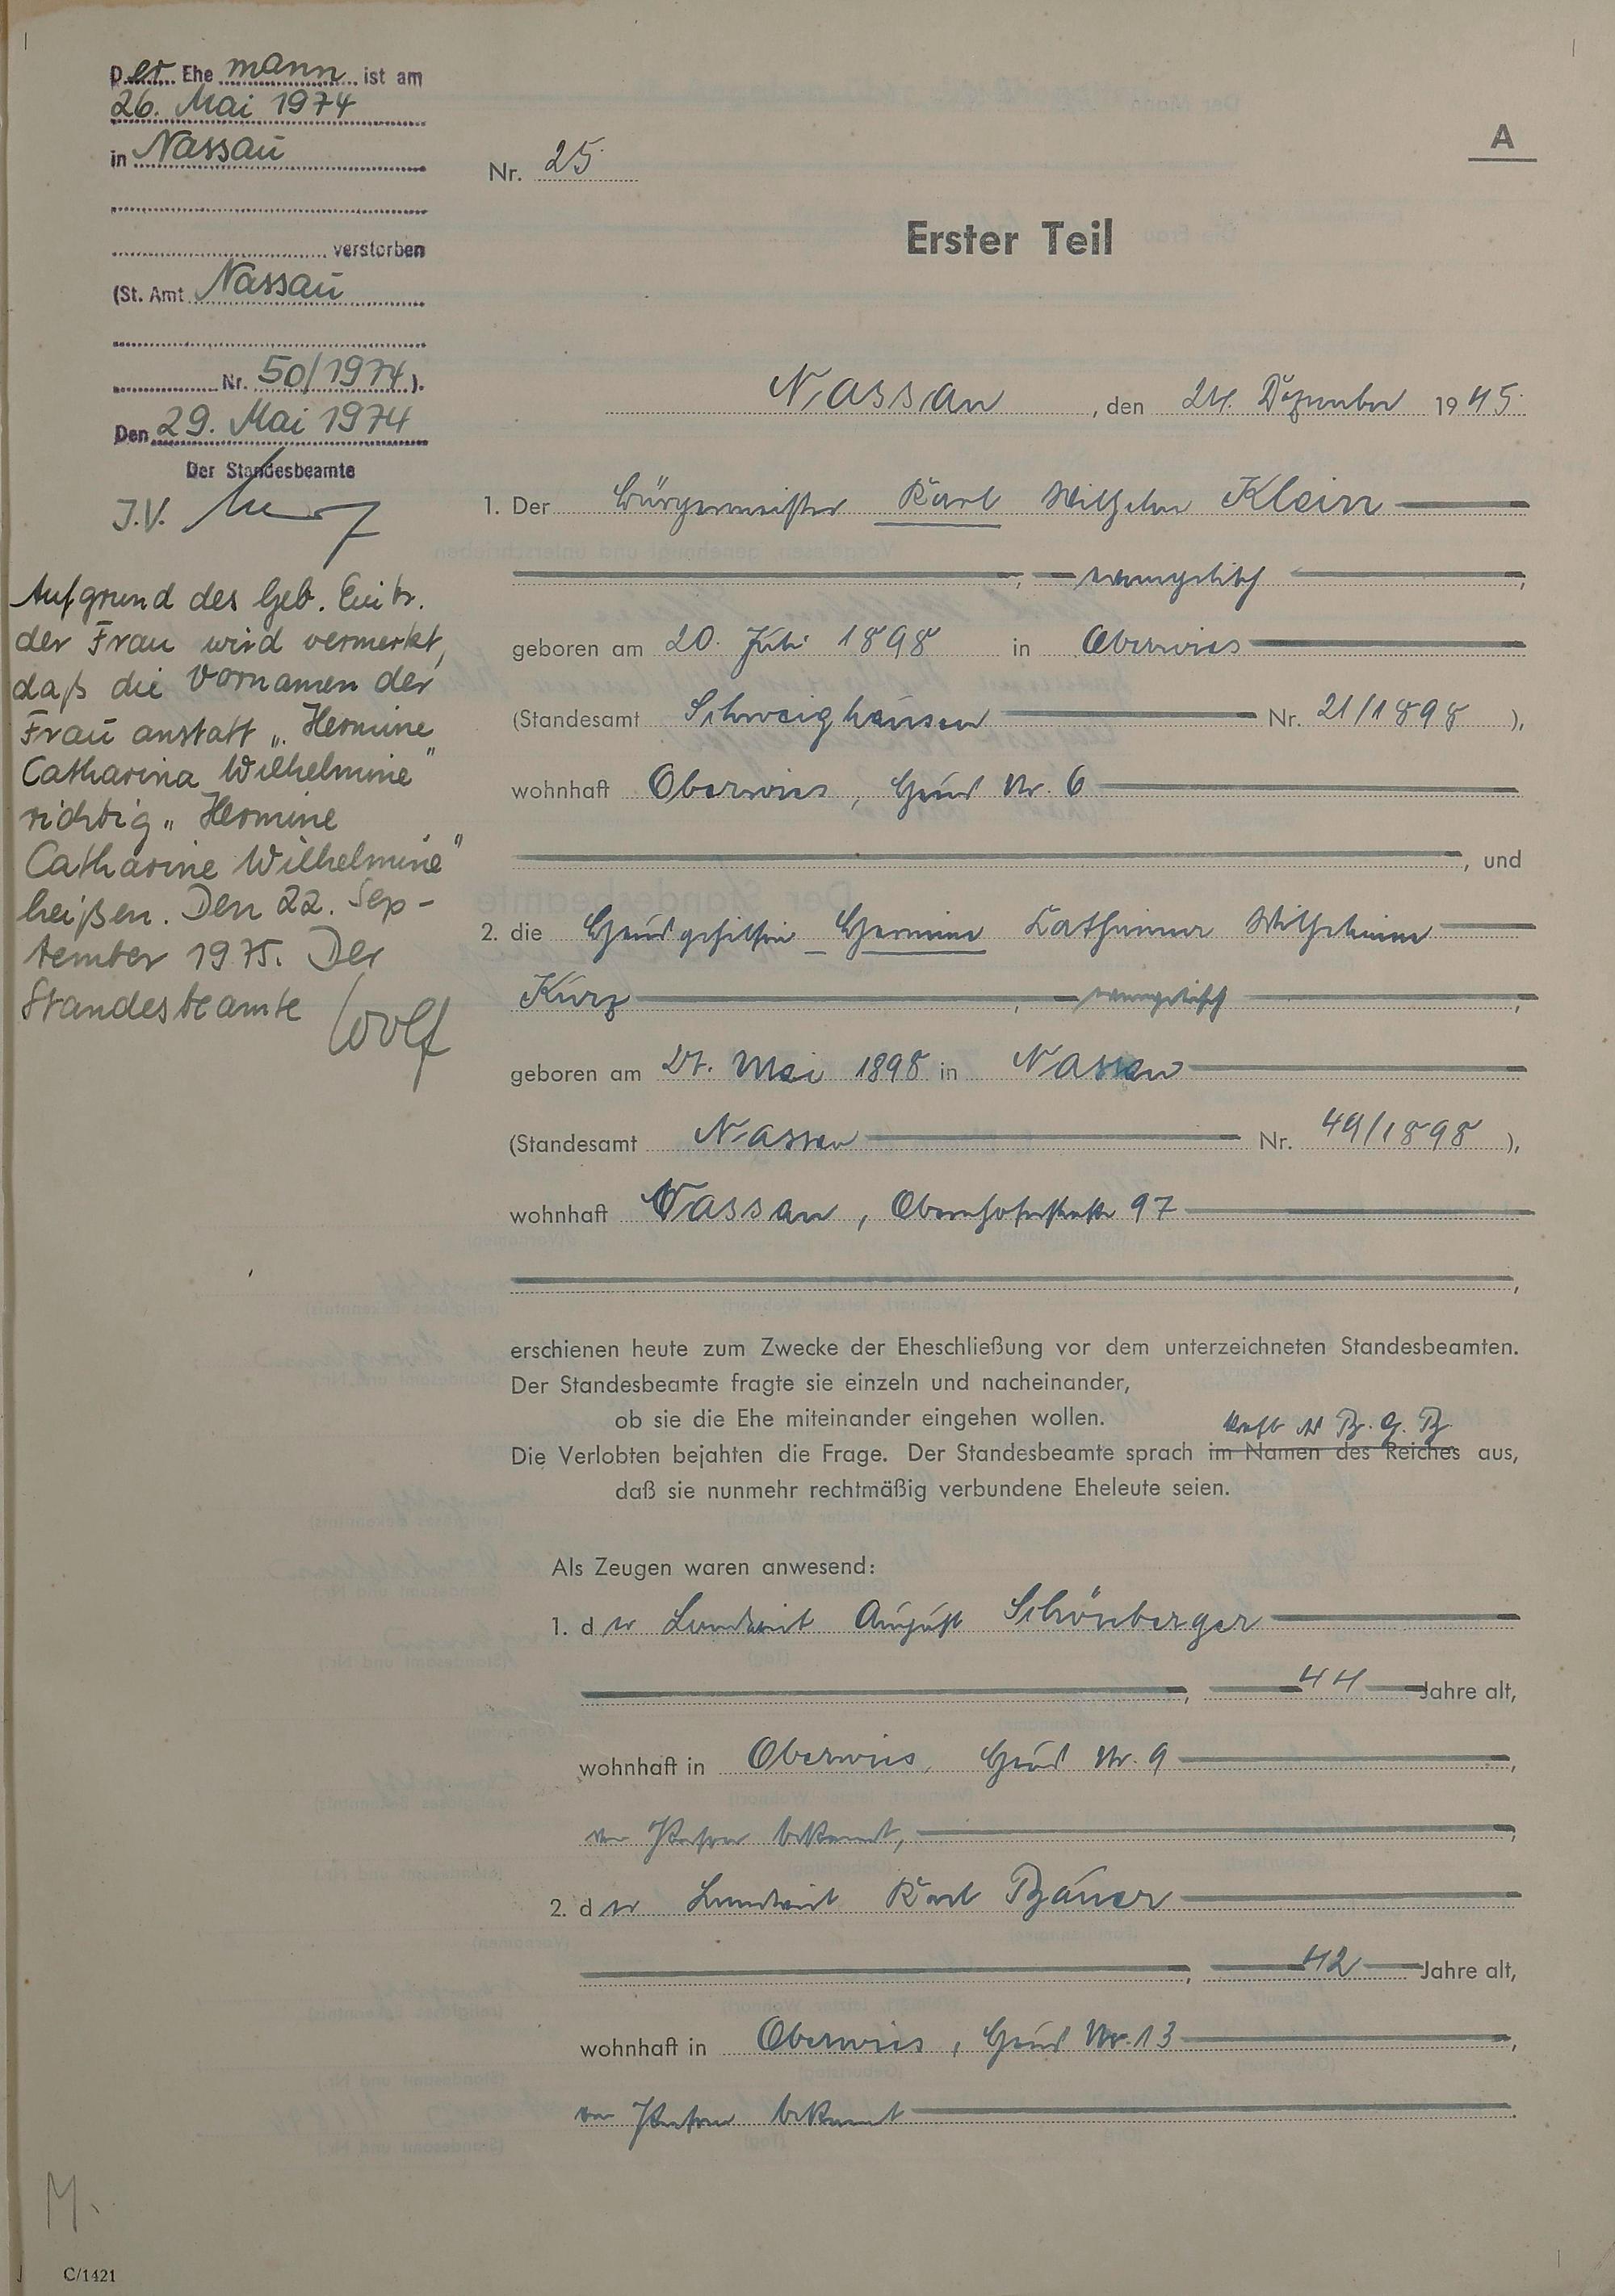 Der Ehemann ist am
26. Mai 1974
in Nassau
verstorben
(St. Amt Nassau
Nr. 50/1974).
Den 29. Mai 1974
Der Standesbeamte
J.V.
Aufgrund des Geb. Eintr.
der Frau wird vermerkt,
daß die Vornamen der
Frau anstatt „Hermine
Catharina Wilhelmine"
richtig „Hermine
Catharine Wilhelmine"
heißen. Den 22. Sep-
tember 1975. Der
Standesbeamte Wolf
A
Nr. 25
Erster Teil
Nassau, den 24. Dezember 1945.
1. Der Bürgermeister Karl Wilhelm Klein
, evangelisch,
geboren am 20. Juli 1898 in Oberwies
(Standesamt Schweighausen Nr. 21/1898 ),
wohnhaft Oberwies, Haus Nr. 6
, und
2. die Hausgehilfin Hermine Catharina Wilhelmine
Kurz, evangelisch,
geboren am 27. Mai 1898 in Nassau
(Standesamt Nassau Nr. 49/1898 ),
wohnhaft Nassau, Obernhoferstraße 97
,
erschienen heute zum Zwecke der Eheschließung vor dem unterzeichneten Standesbeamten.
Der Standesbeamte fragte sie einzeln und nacheinander,
ob sie die Ehe miteinander eingehen wollen.
kraft des B. G. B.
Die Verlobten bejahten die Frage. Der Standesbeamte sprach im Namen des Reiches aus,
daß sie nunmehr rechtmäßig verbundene Eheleute seien.
Als Zeugen waren anwesend:
1. der Landwirt August Schönberger
, 44 Jahre alt,
wohnhaft in Oberwies, Haus Nr. 9,
von Person bekannt,
2. der Landwirt Karl Bauer
, 42 Jahre alt,
wohnhaft in Oberwies, Haus Nr. 13,
von Person bekannt.
M.
C/1421